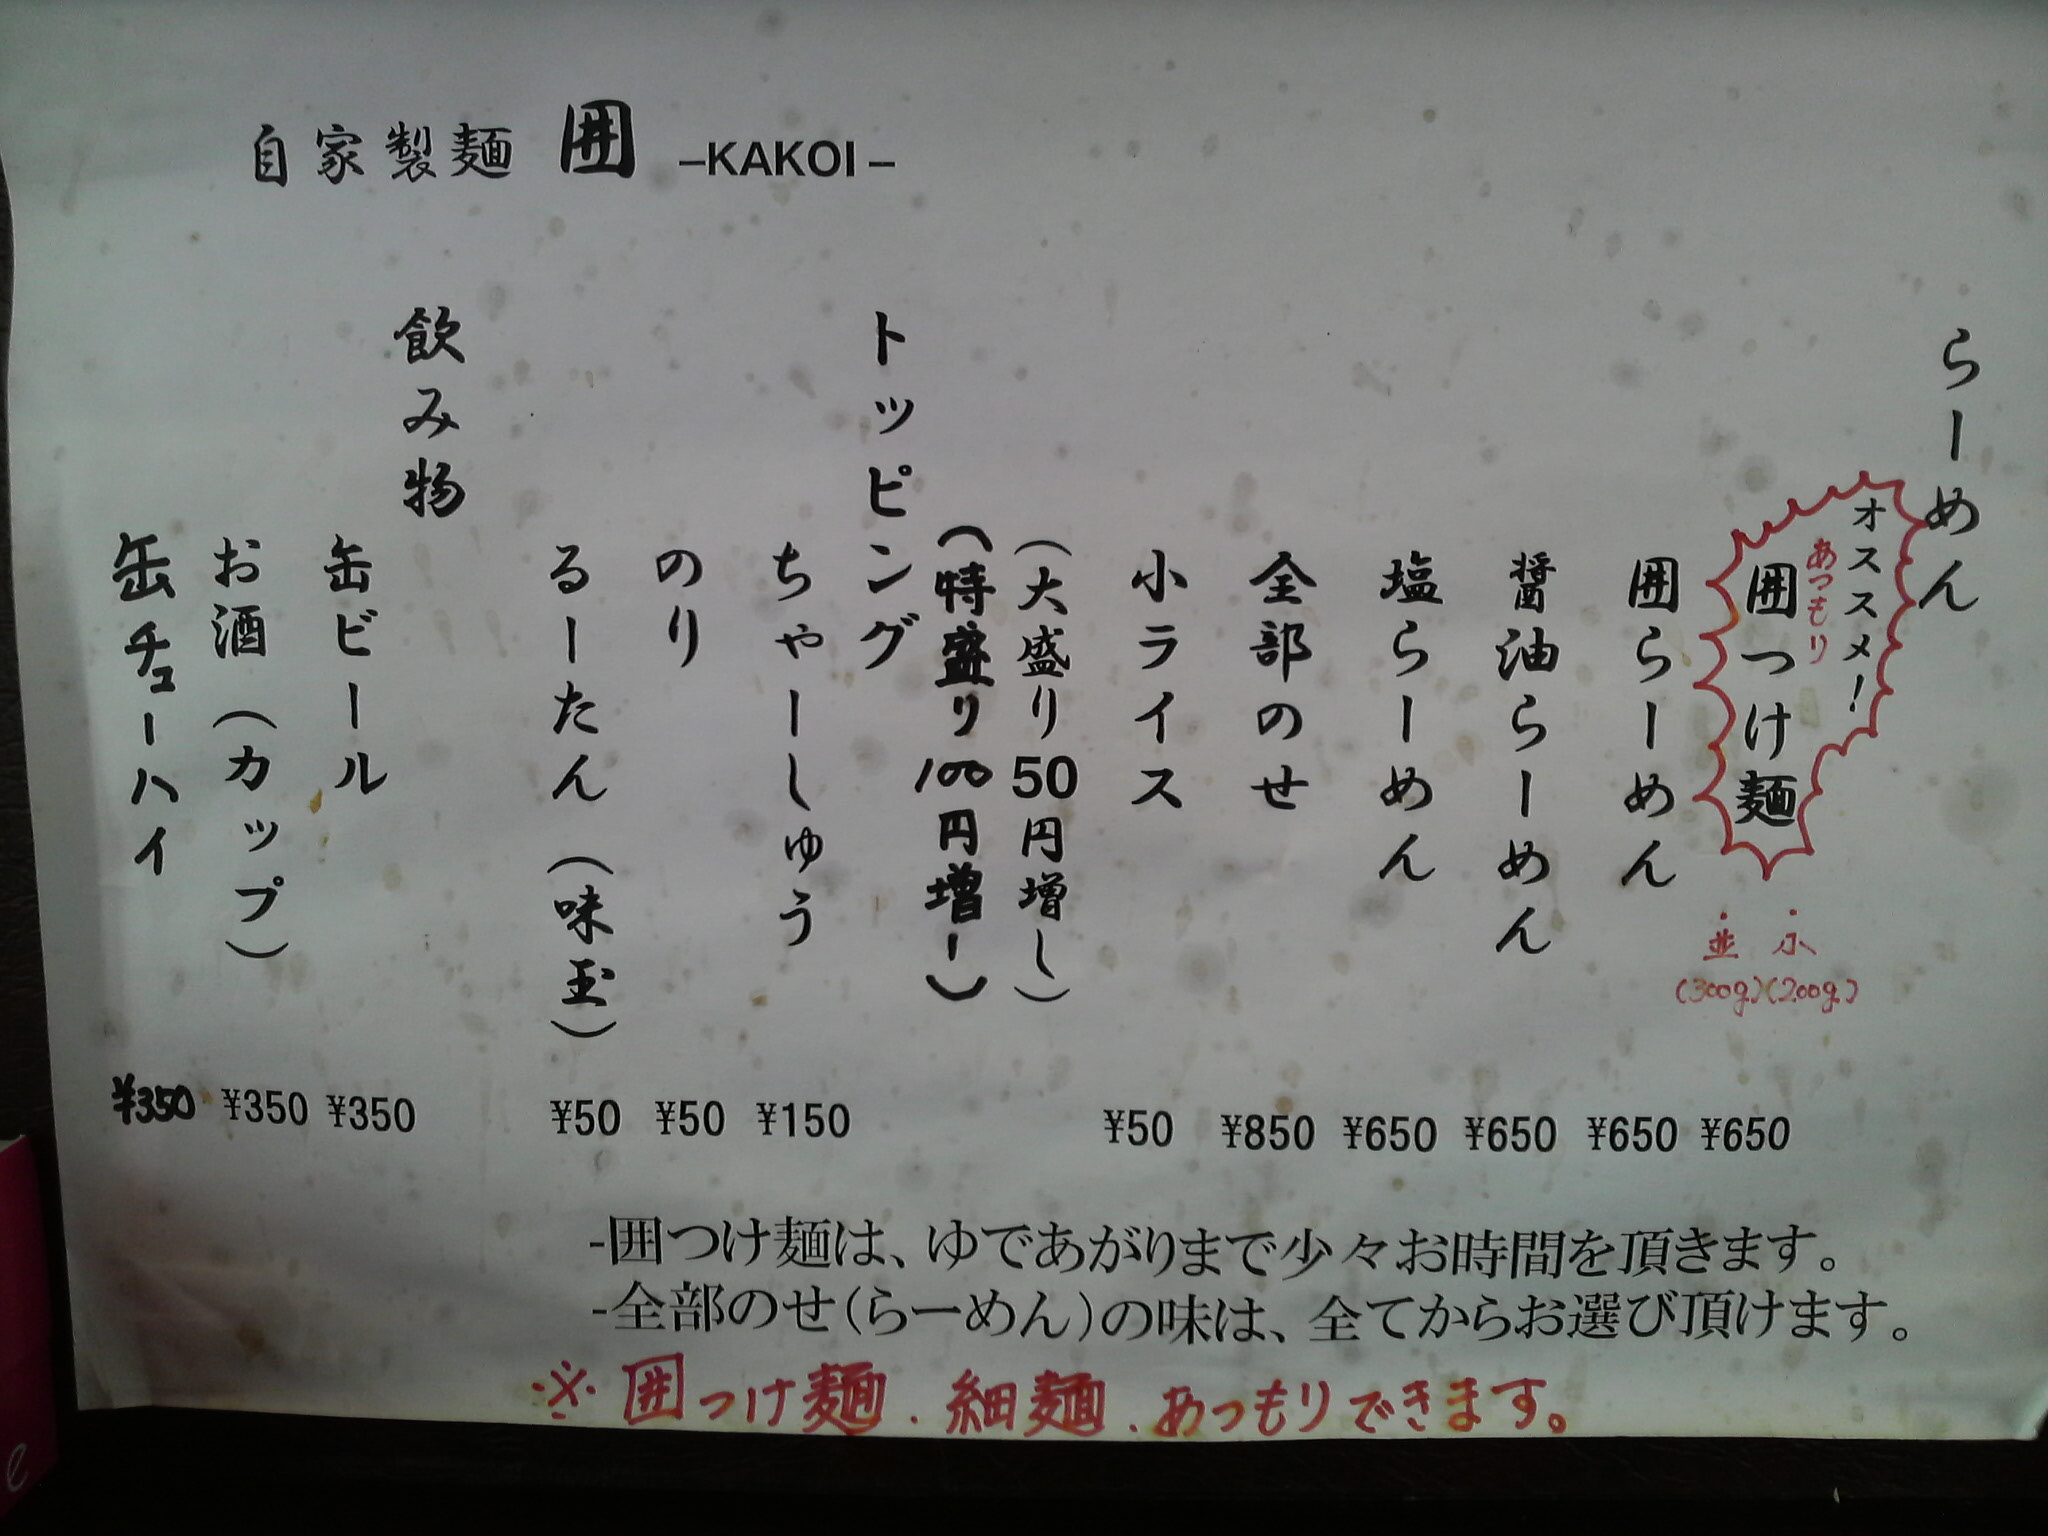 自家製麺 囲 –KAKOI–
らーめん
オススメ!
あつもり
囲つけ麺
・小(200g)
・並(300g)
¥650
囲らーめん ¥650
醤油らーめん ¥650
塩らーめん ¥650
全部のせ ¥850
小ライス ¥50
(大盛り50円増し)
(特盛り100円増し)
トッピング
ちゃーしゅう ¥150
のり ¥50
るーたん(味玉) ¥50
飲み物
缶ビール ¥350
お酒(カップ) ¥350
缶チューハイ ¥350
-囲つけ麺は、ゆであがりまで少々お時間を頂きます。
-全部のせ(らーめん)の味は、全てからお選び頂けます。
※囲つけ麺.細麺.あつもりできます。